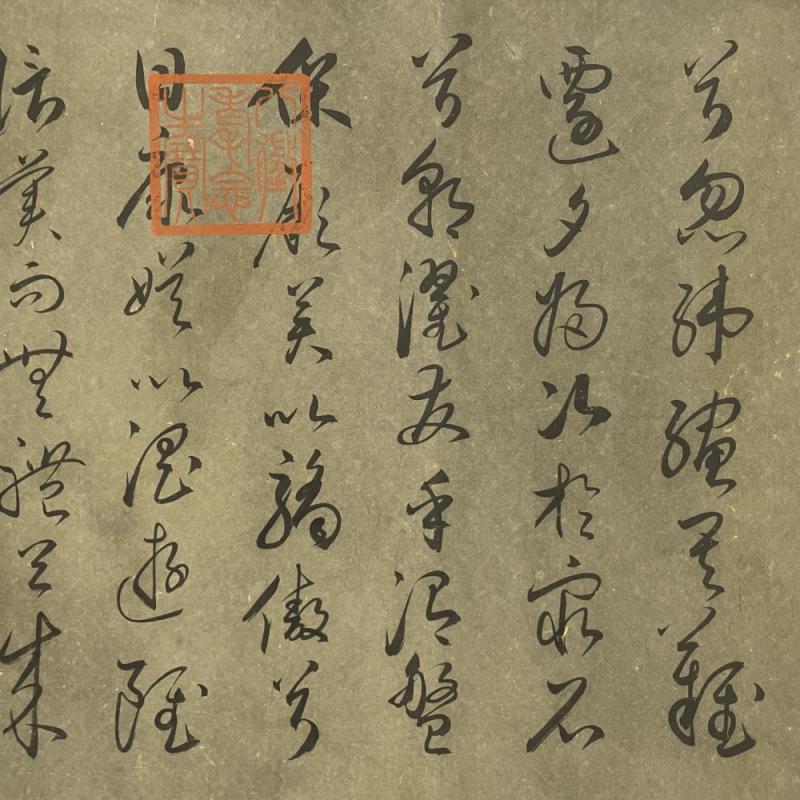 兮忽緯繣其難
遷夕歸次於窮石
兮朝濯髮乎洧盤
保厥美以驕傲兮
日康娛以淫遊雖
信美而無禮兮來
八徵耄念之寶